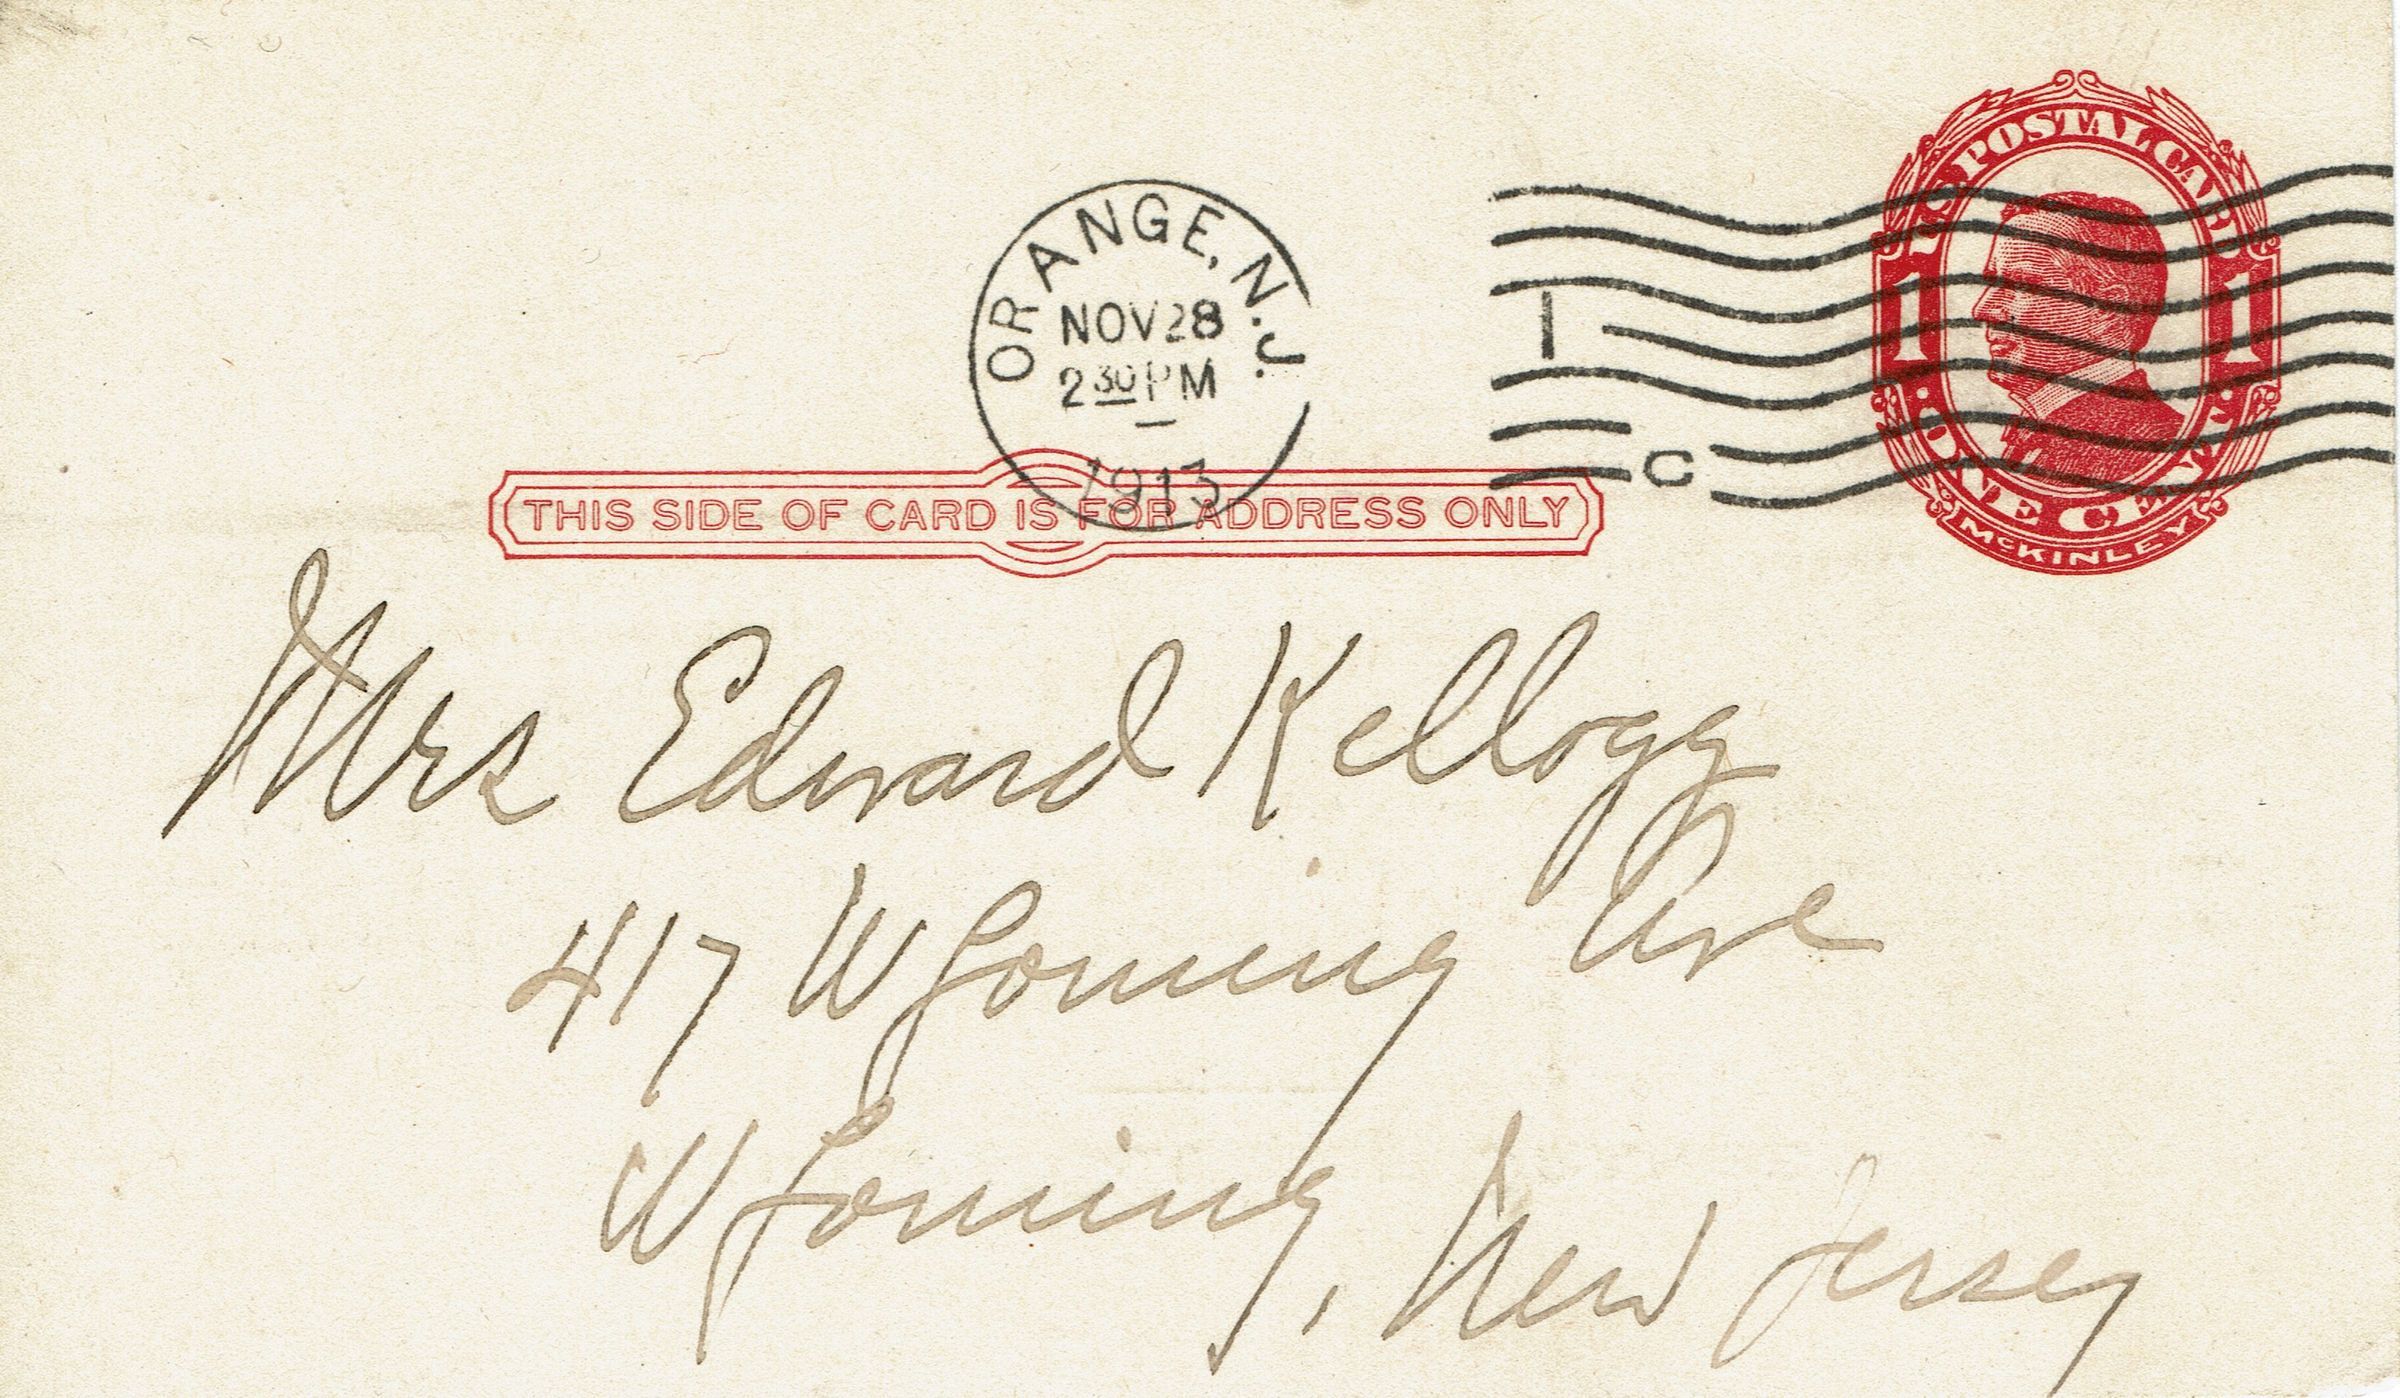 U.S. POSTAL CARD
1 1
· ONE CENT ·
McKINLEY
ORANGE, N.J.
NOV 28
2 30 PM
1913
1
C
THIS SIDE OF CARD IS FOR ADDRESS ONLY
Mrs Edward Kellogg
417 Wyoming Ave
Wyoming, New Jersey